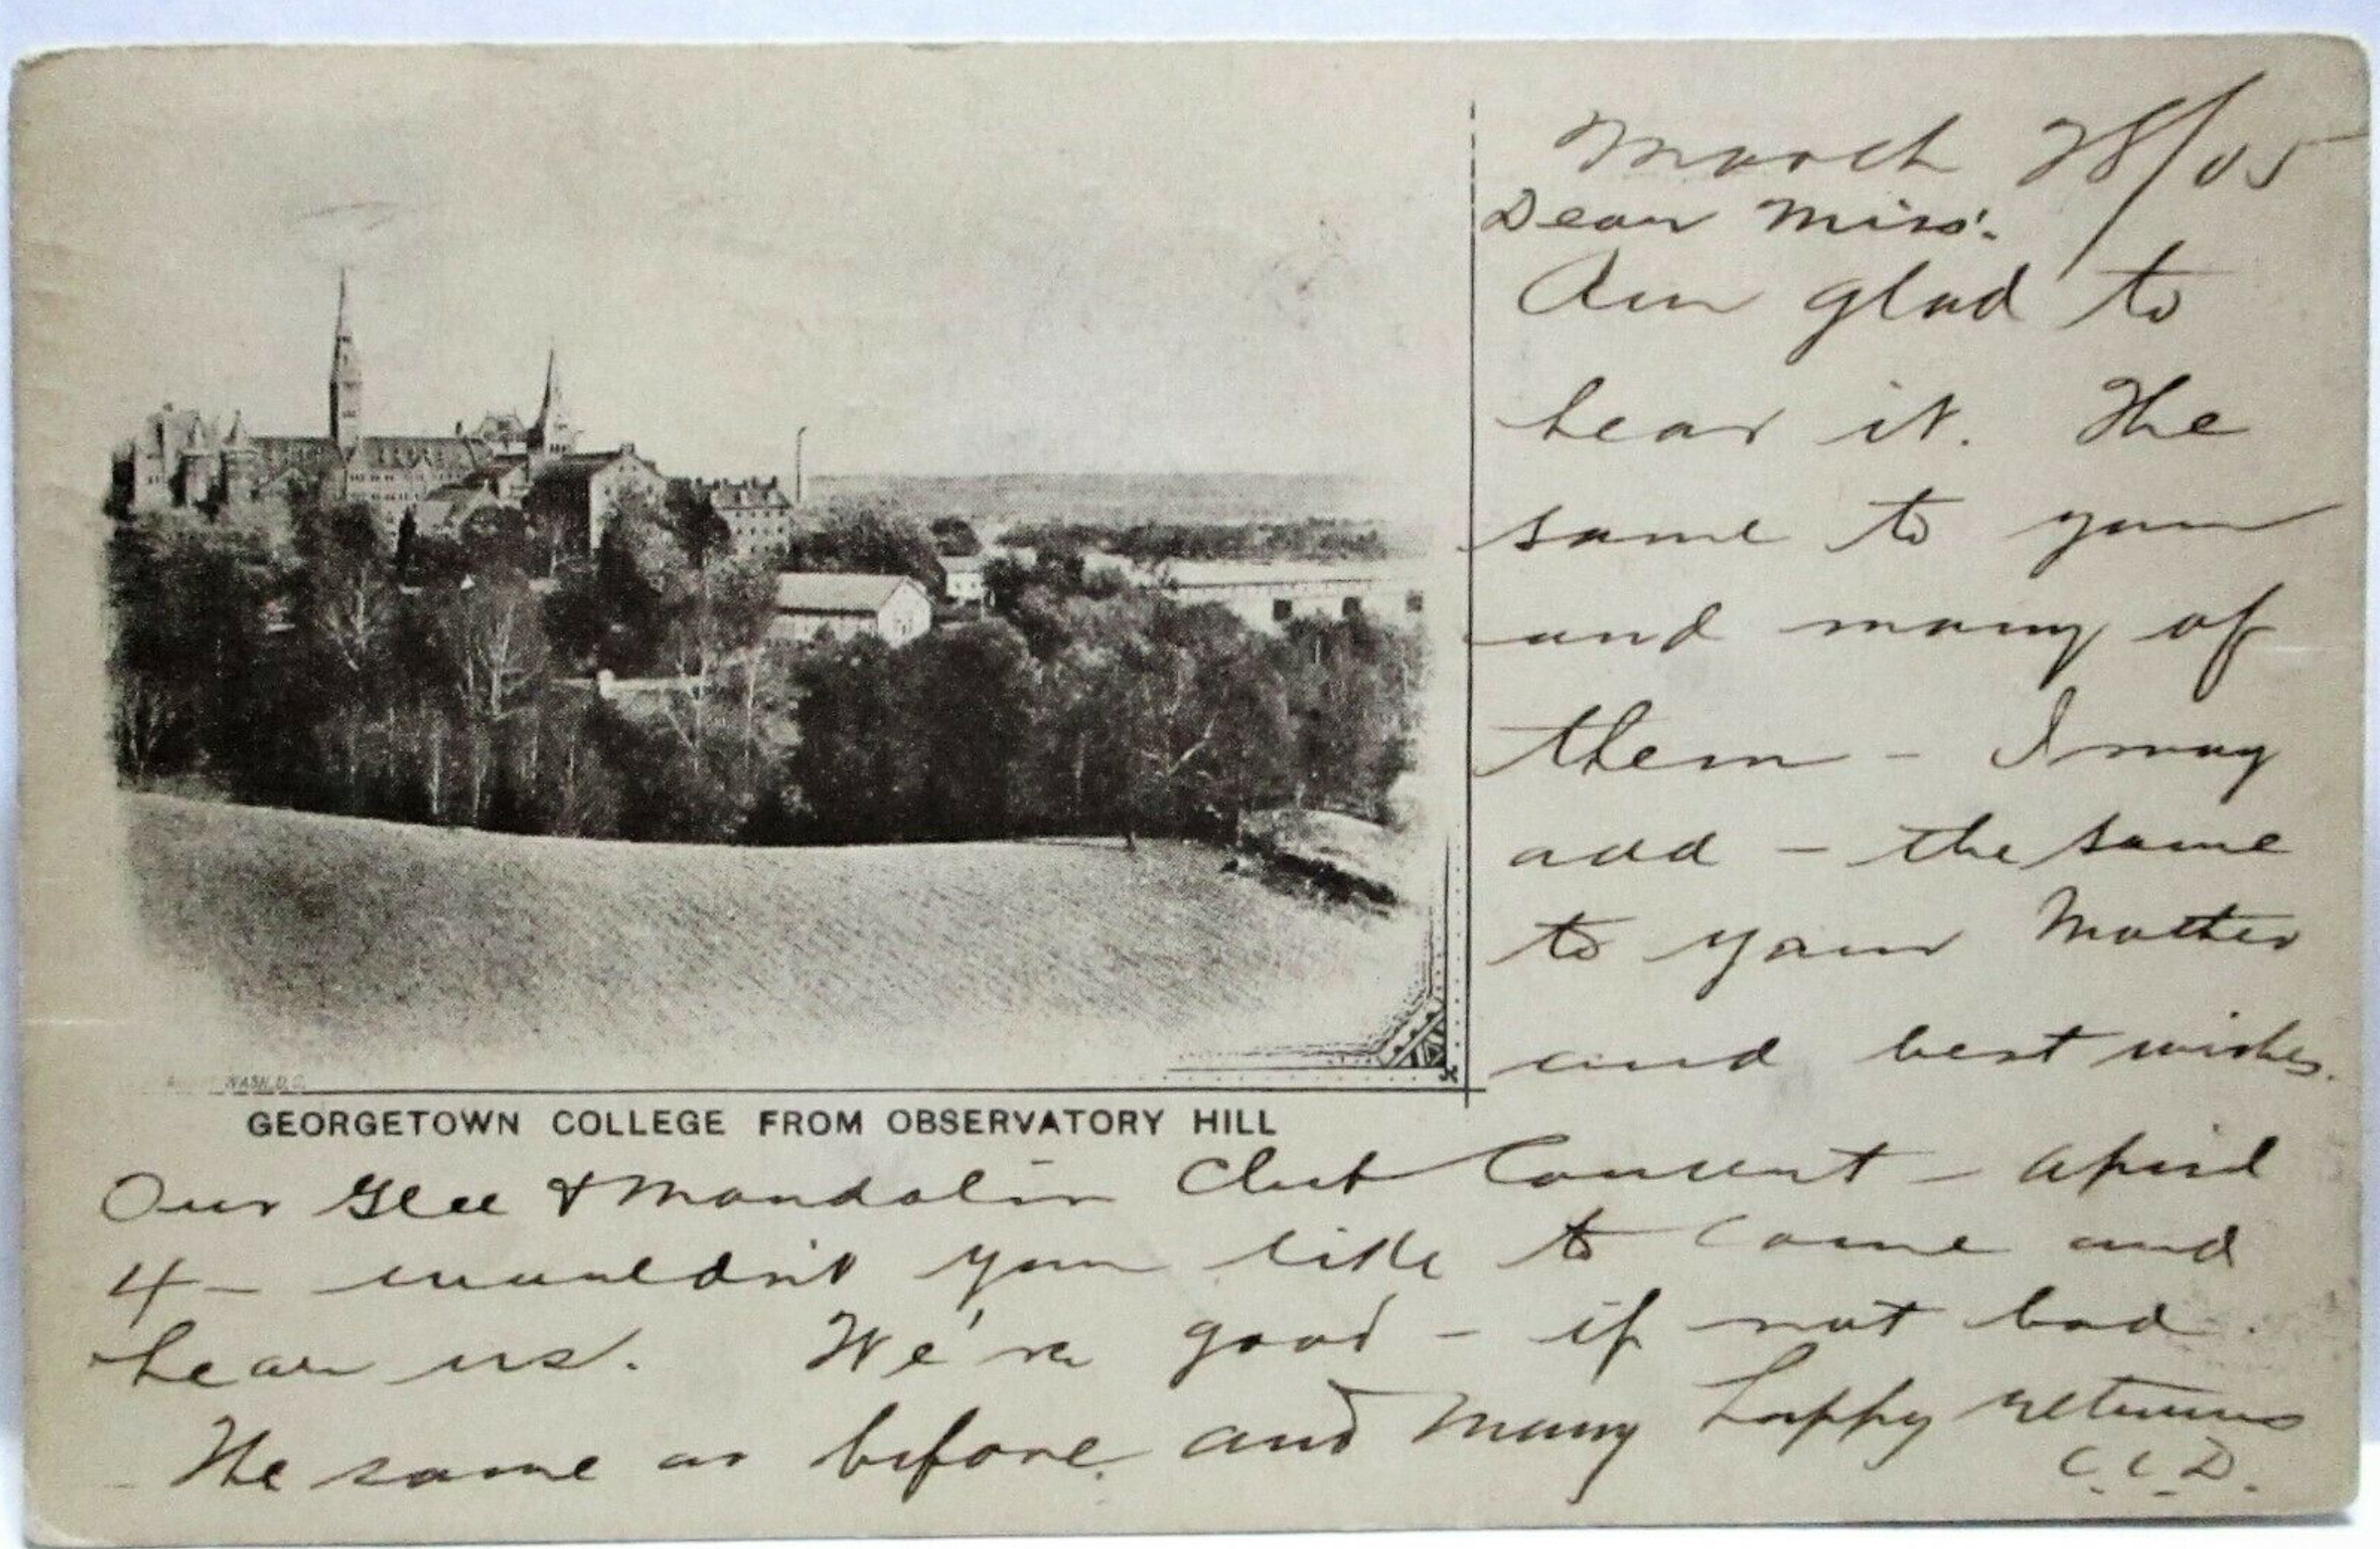 March 28/05
Dear Miss:
Am glad to
hear it. The
same to you
and many of
them - I may
add - the same
to your Mother
and best wishes.
WASH. D.C.
GEORGETOWN COLLEGE FROM OBSERVATORY HILL
Our Glee & Mandolin Club Concert - April
4 - wouldn't you like to come and
hear us. We're good - if not bad.
The same as before and many happy returns
C.C.D.